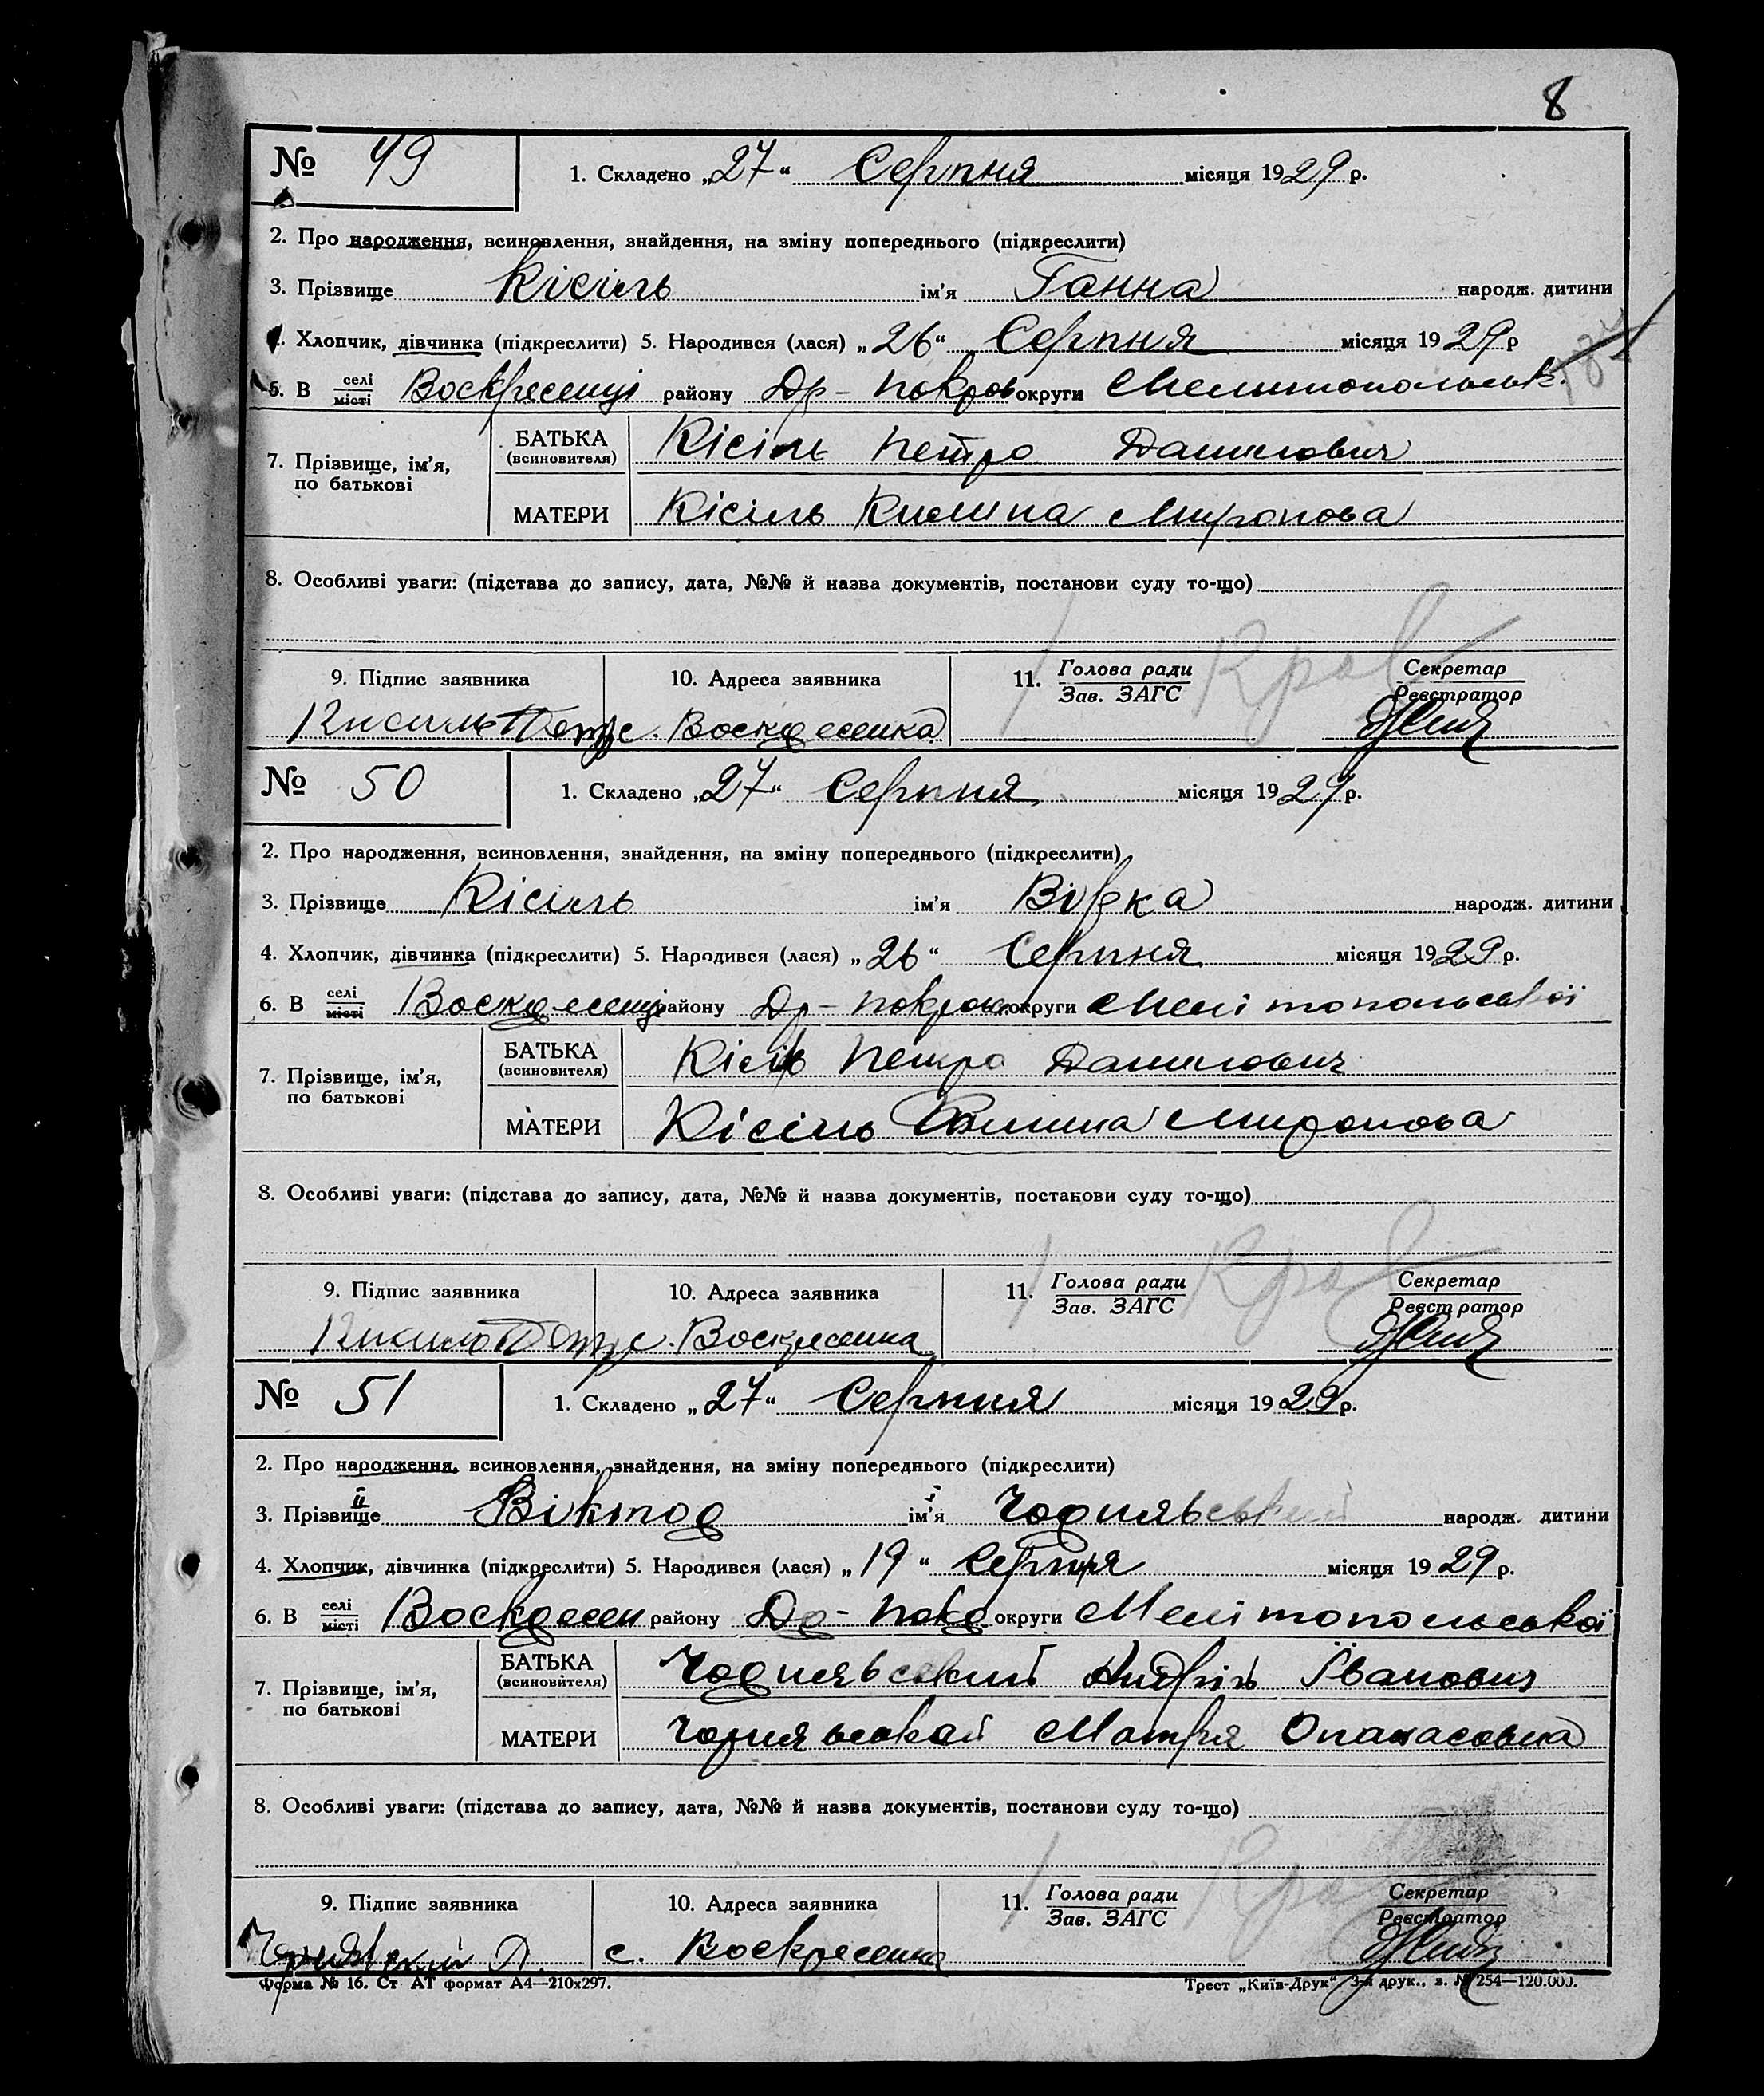 8
№ 49
1. Складено „27“ Серпня місяця 1929 р.
2. Про народження, всиновлення, знайдення, на зміну попереднього (підкреслити)
3. Прізвище Кісіль ім'я Ганна народж. дитини
4. Хлопчик, дівчинка (підкреслити) 5. Народився (лася) „26“ Серпня місяця 1929 р
6. В селі місті Воскресенці району Др-Покров округи Мелитопольськ.
7. Прізвище, ім'я, по батькові
БАТЬКА (всиновителя) Кісіль Петро Данилович
МАТЕРИ Кісіль Килина Миронова
8. Особливі уваги: (підстава до запису, дата, №№ й назва документів, постанови суду то-що)
9. Підпис заявника 10. Адреса заявника 11. Голова ради Зав. ЗАГС Секретар Реєстратор
Кисиль Петр с. Воскресенка
№ 50
1. Складено „27“ Серпня місяця 1929 р.
2. Про народження, всиновлення, знайдення, на зміну попереднього (підкреслити)
3. Прізвище Кісіль ім'я народж. дитини
4. Хлопчик, дівчинка (підкреслити) 5. Народився (лася) „26“ Серпня місяця 1929 р.
6. В селі місті Воскресенці району Др-Покров округи Мелітопольської
7. Прізвище, ім'я, по батькові
БАТЬКА (всиновителя) Кісіль Петро Данилович
МАТЕРИ Кісіль Килина Миронова
8. Особливі уваги: (підстава до запису, дата, №№ й назва документів, постанови суду то-що)
9. Підпис заявника 10. Адреса заявника 11. Голова ради Зав. ЗАГС Секретар Реєстратор
Кисиль Петр с. Воскресенка
№ 51
1. Складено „27“ Серпня місяця 1929 р.
2. Про народження, всиновлення, знайдення, на зміну попереднього (підкреслити)
3. Прізвище Віктор ім'я Чорнявський народж. дитини
4. Хлопчик, дівчинка (підкреслити) 5. Народився (лася) „19“ Серпня місяця 1929 р.
6. В селі місті Воскресен району Др-Покр округи Мелітопольської
7. Прізвище, ім'я, по батькові
БАТЬКА (всиновителя) Чорнявський Андрій Іванович
МАТЕРИ Чорнявськай Мотря Опанасовна
8. Особливі уваги: (підстава до запису, дата, №№ й назва документів, постанови суду то-що)
9. Підпис заявника 10. Адреса заявника 11. Голова ради Зав. ЗАГС Секретар Реєстратор
Чернявский А. с. Воскресенка
Форма № 16. Ст АТ формат А4—210x297. Трест „Київ-Друк“ 3-я друк., з. № 254—120.000.